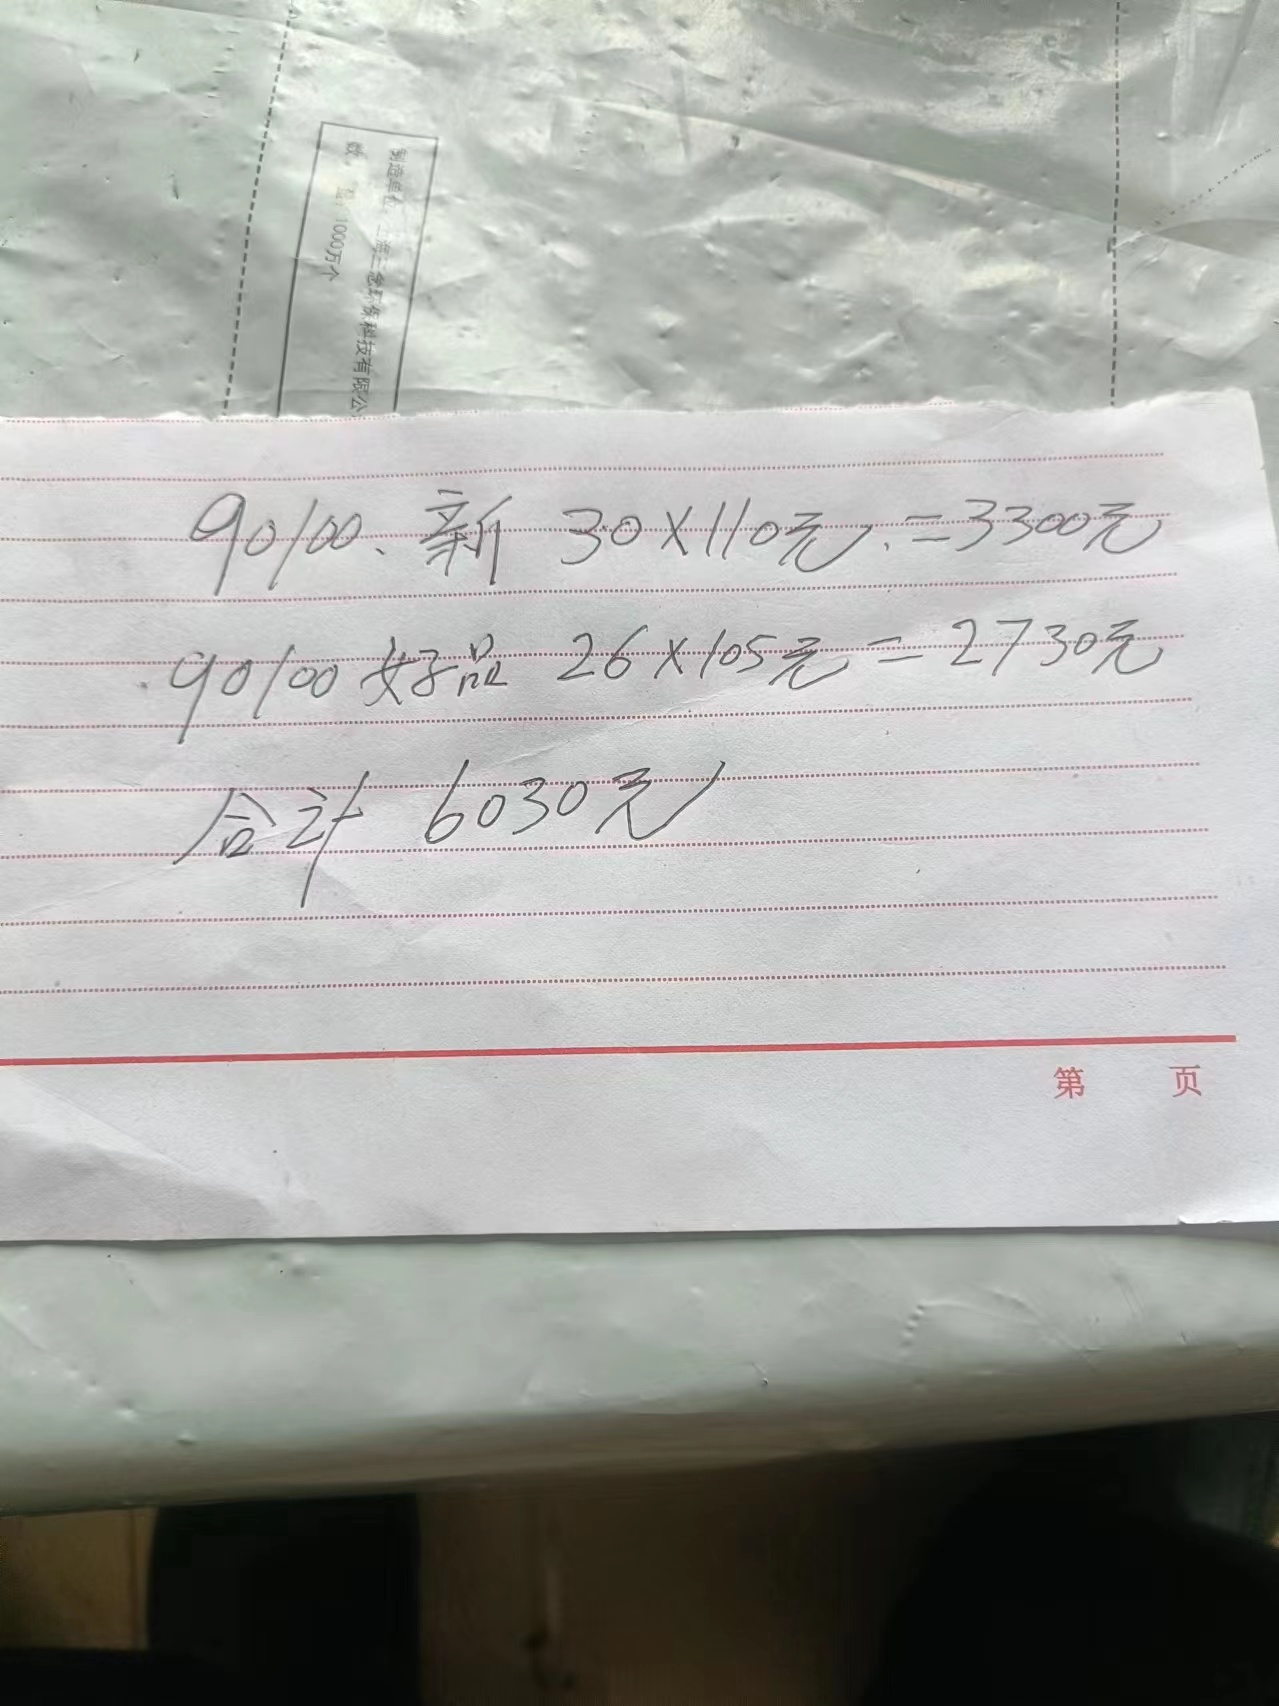 制造单位
数 量：1000万个
90100、新 30×110元.=3300元
90100好品 26×105元=2730元
合计 6030元
第 页